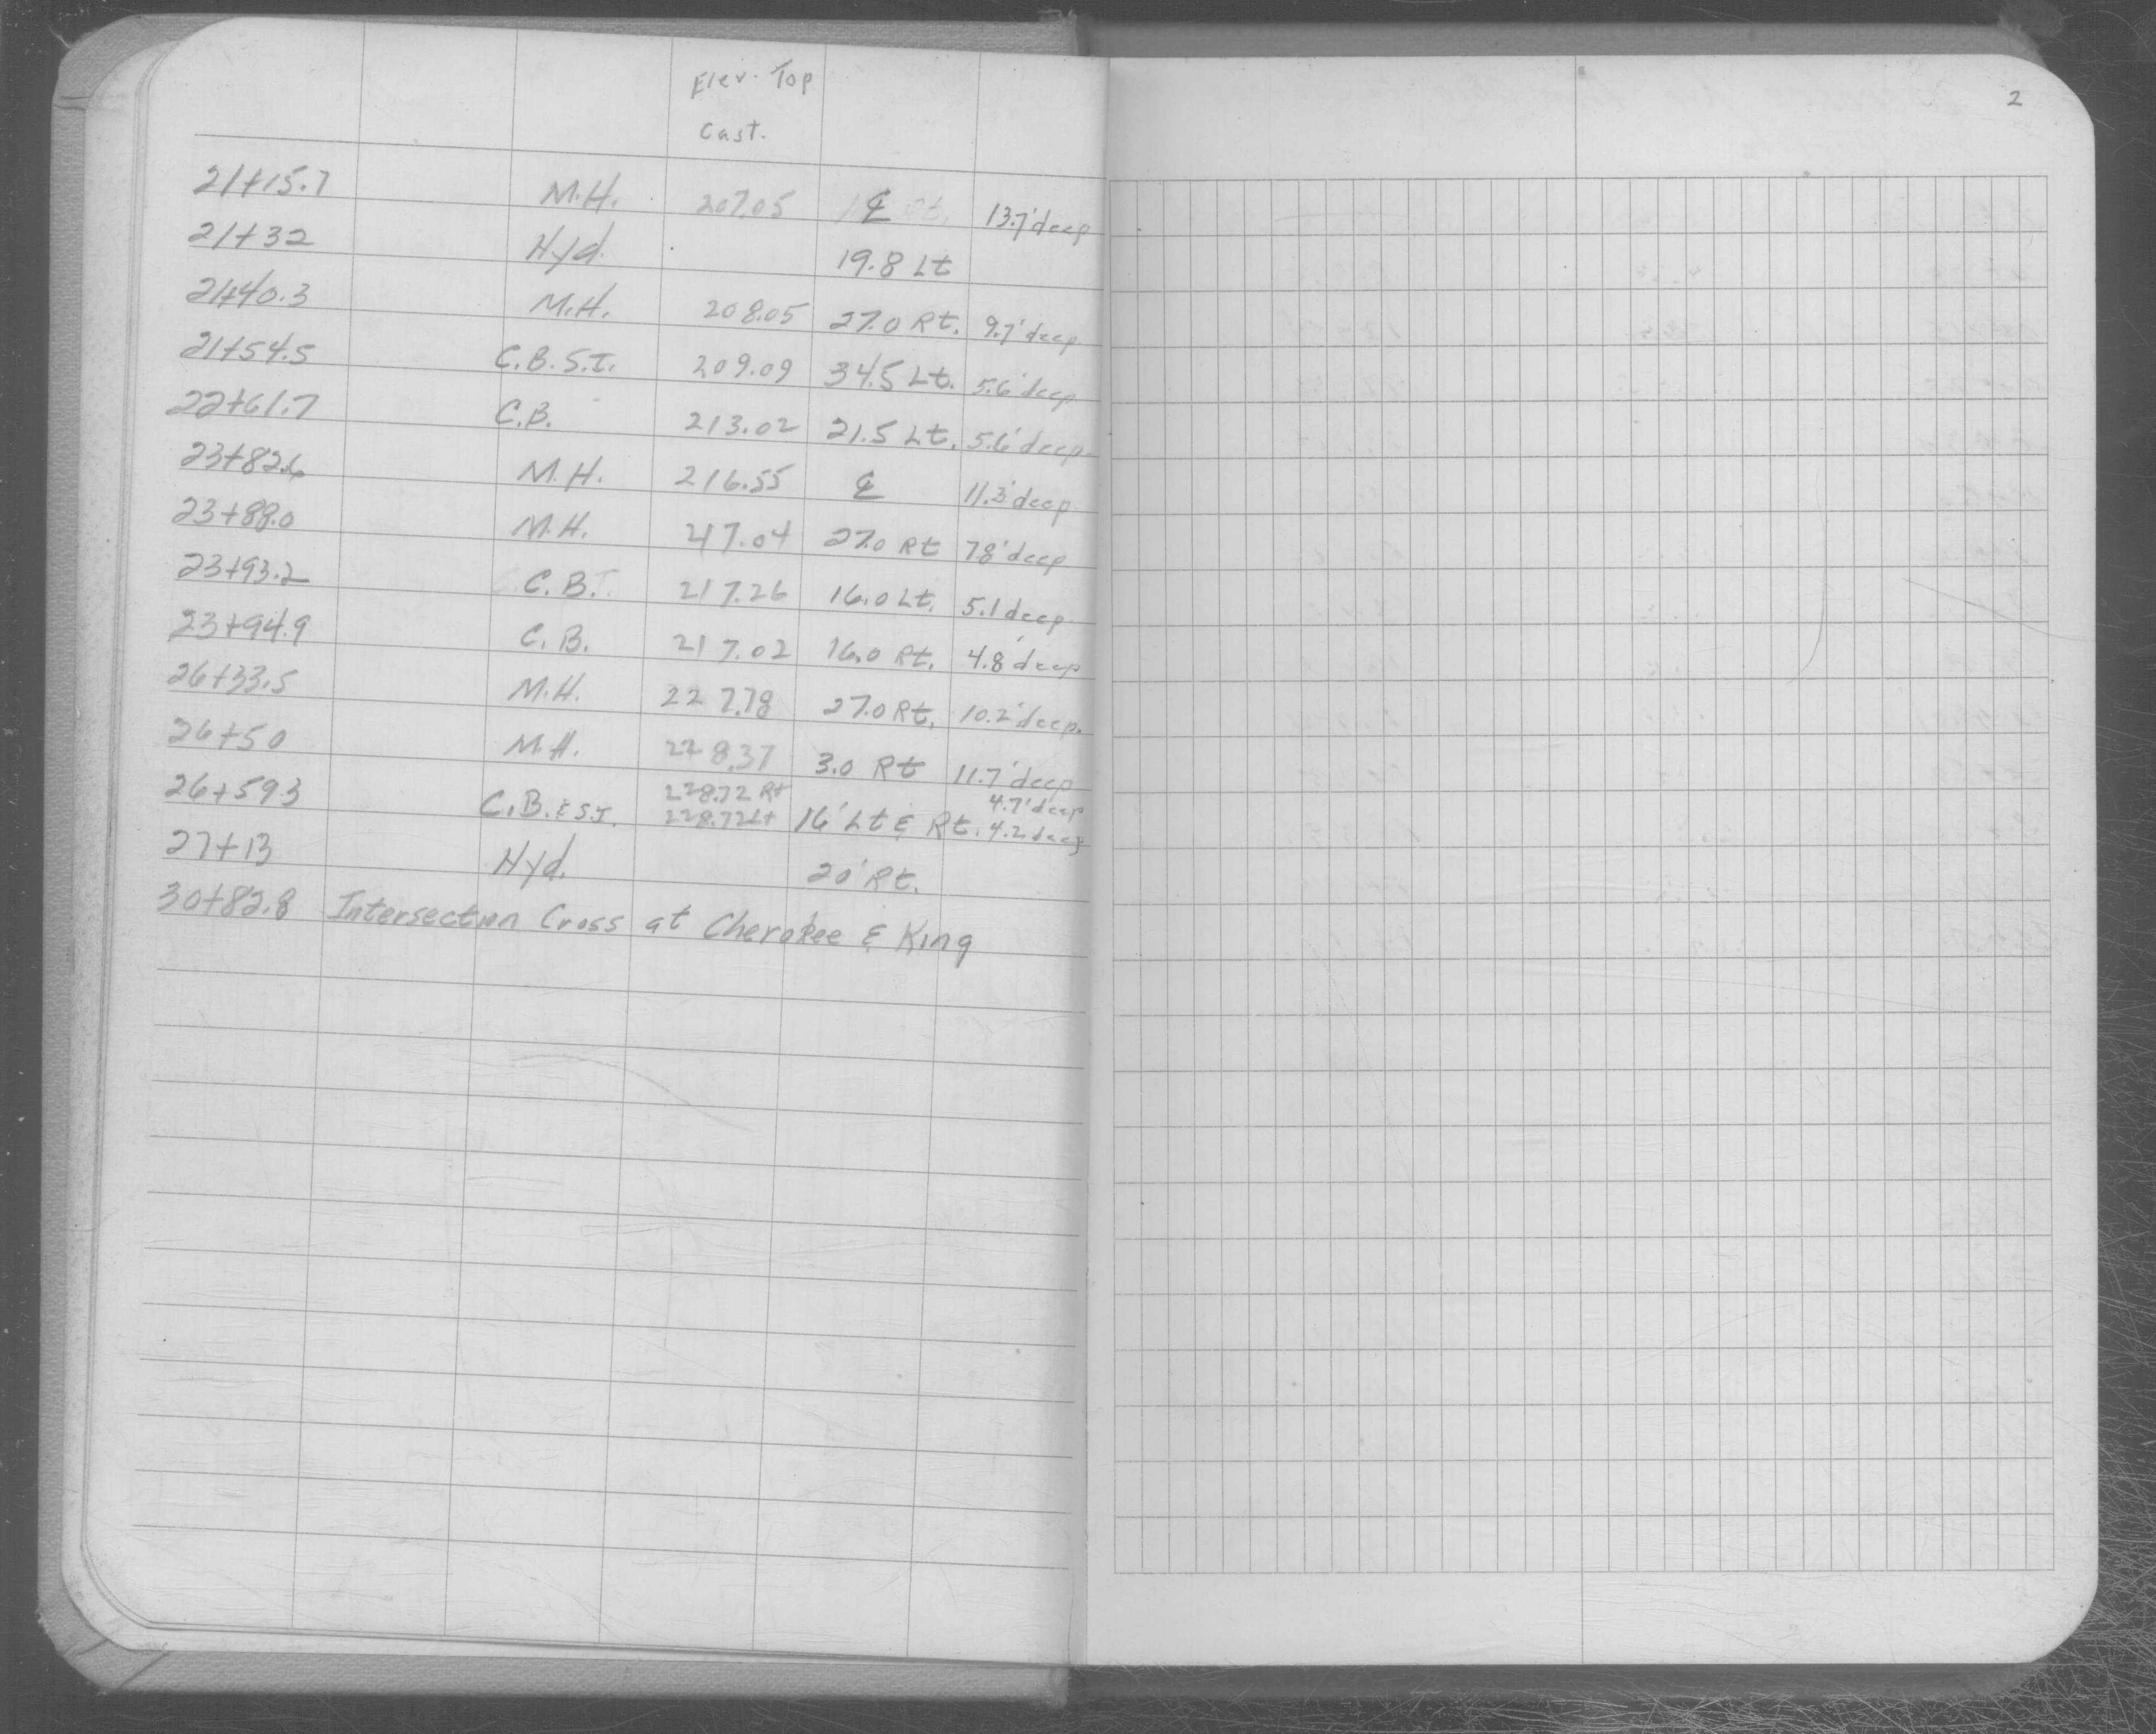 Elev. Top
Cast.
2
21+15.7 M.H. 207.05 ℄ 13.7' deep
21+32 Hyd. 19.8 Lt
21+40.3 M.H. 208.05 27.0 Rt. 9.7' deep
21+54.5 C.B.S.I. 209.09 34.5 Lt. 5.6' deep
22+61.7 C.B. 213.02 21.5 Lt. 5.6' deep
23+82.6 M.H. 216.55 ℄ 11.3' deep
23+88.0 M.H. 217.04 27.0 Rt 7.8' deep
23+93.2 C.B. 217.26 16.0 Lt. 5.1 deep
23+94.9 C.B. 217.02 16.0 Rt. 4.8' deep
26+33.5 M.H. 227.78 27.0 Rt. 10.2' deep.
26+50 M.H. 228.37 3.0 Rt 11.7' deep
228.72 Rt 4.7' deep
26+59.3 C.B. & S.I. 228.72 Lt 16' Lt & Rt. 4.2 deep
27+13 Hyd. 20' Rt.
30+82.8 Intersection Cross at Cherokee & King